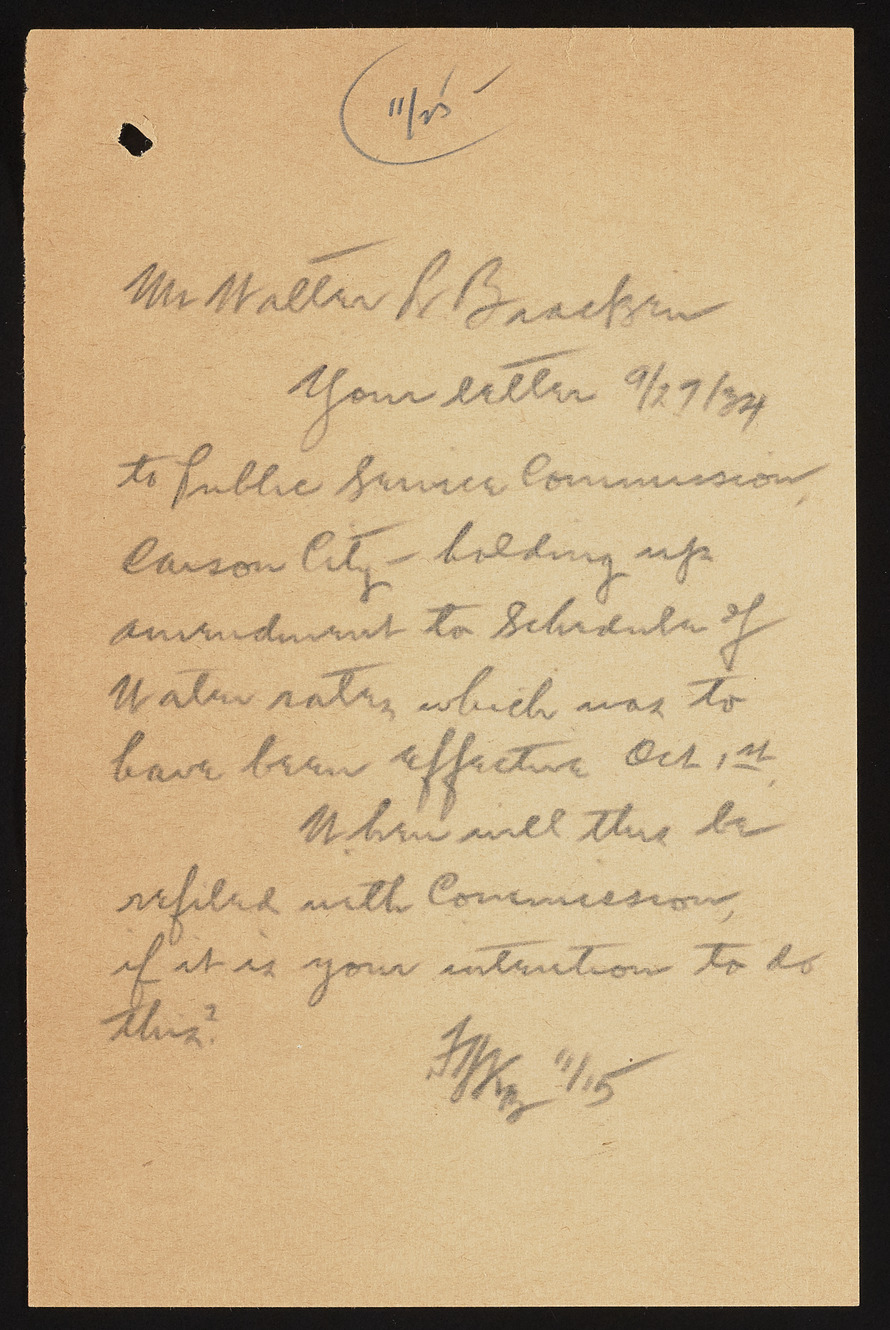 11/25
Mr Walter R Bracken
Your letter 9/27/34
to Public Service Commission,
Carson City - holding up
amendment to Schedule of
Water rates which was to
have been effective Oct 1st.
When will this be
refiled with Commission,
if it is your intention to do
this?
11/15